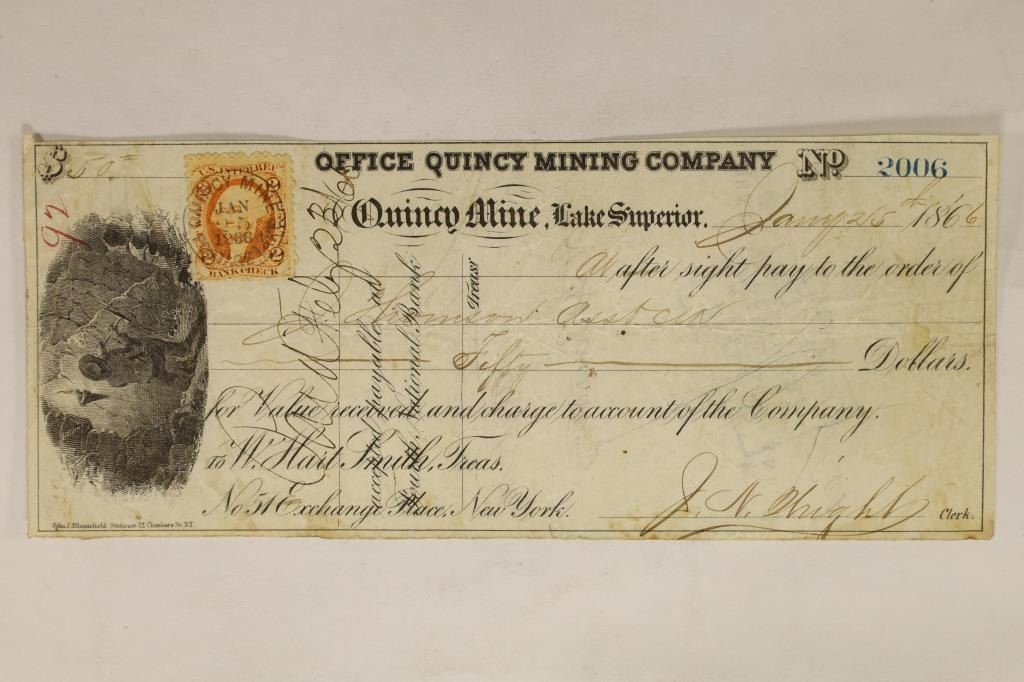 $ 50
OFFICE QUINCY MINING COMPANY
No 2006
Quincy Mine, Lake Superior.
Jany 25th 1866
U.S. INTER. REV.
2 2
QUINCY MINE
JAN
25
1866
2 2
BANK CHECK
92
At after sight pay to the order of
Johnson Asst Clk
Fifty Dollars.
for Value received and charge to account of the Company.
To W. Hart Smith, Treas.
No 51 Exchange Place, New York.
J. N. Wright Clerk.
Feby 23/66
accepted payable at
Fourth National Bank
Treasr
John J. Bloomfield Stationer 72 Chambers St. N.Y.